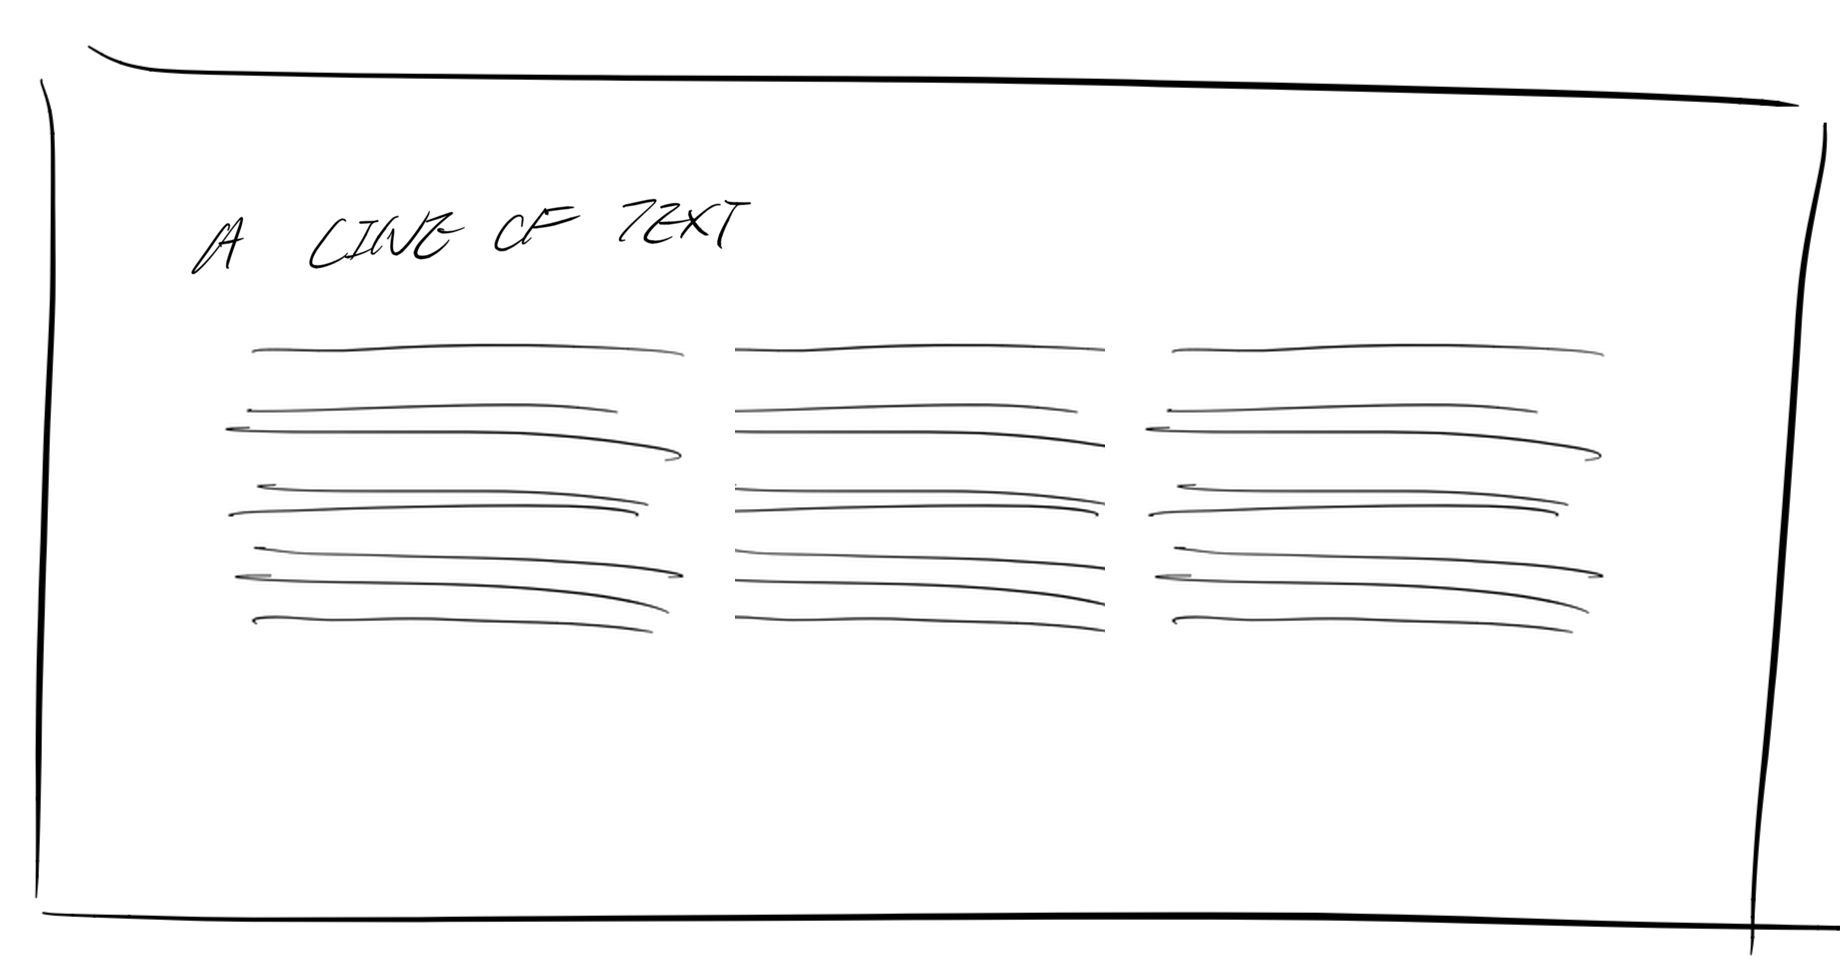 A LINE OF TEXT